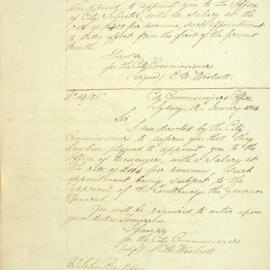 been pleased to appoint you to the Office
of City Inspector, with the Salary at the
rate of £400 per annum, such appointment
to take effect from the first of the present
month.
I have &c
for the City Commissioners
(signed) C. H. Woolcott
City Commissioners Office
Sydney 12 January 1854
Sir
I am directed by the City
Commissioners to inform you that they
have been pleased to appoint you to the
Office of Messenger, with a Salary at
the rate of per annum, such
appointment being subject to the
approval of His Excellency the Governor
General.
You will be required to enter upon
your duties
I have &c
for the City Commissioners
(signed) C. H. Woolcott
Mr John